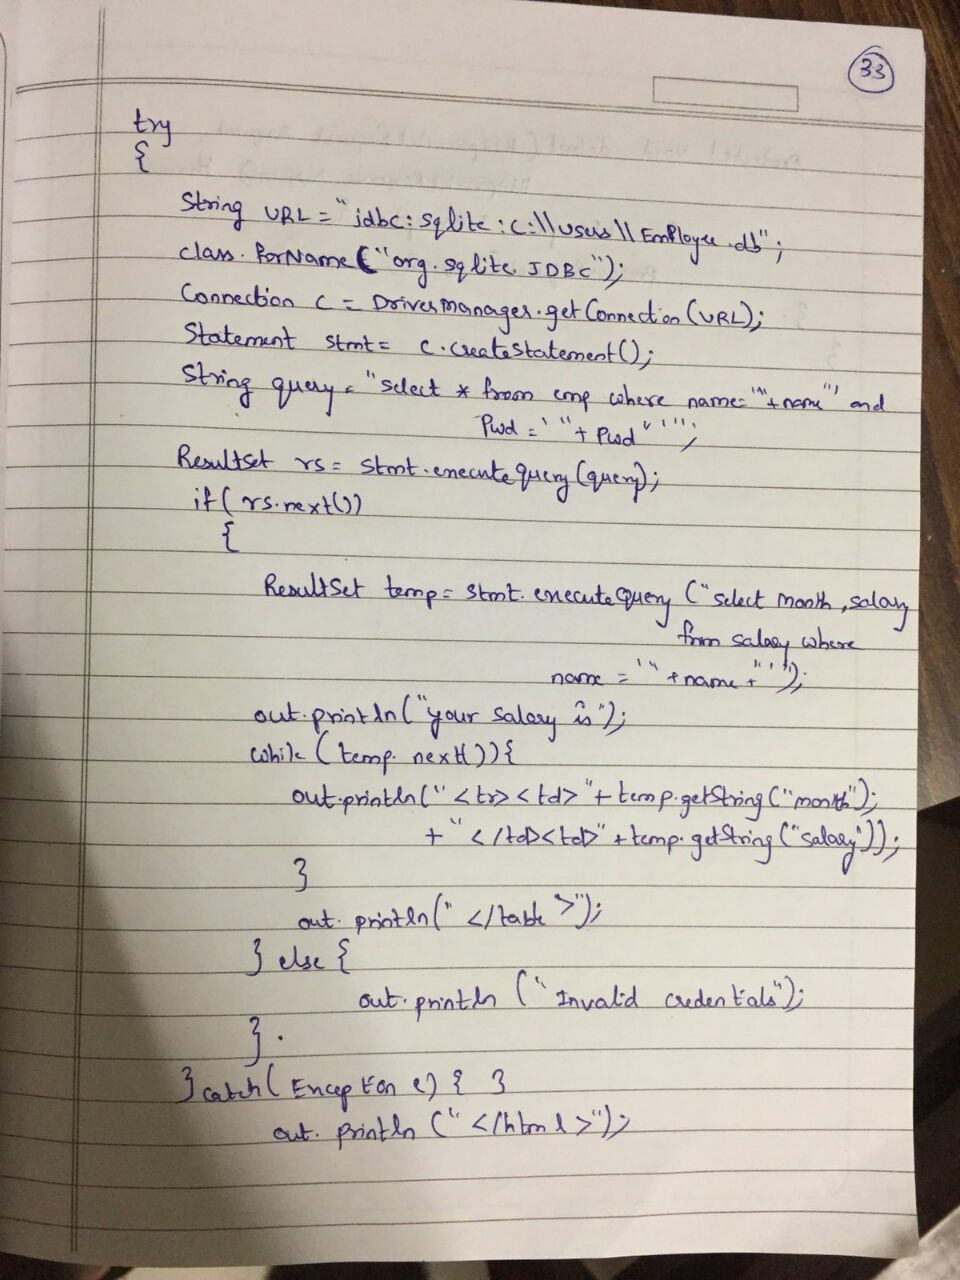 33
try
{
String URL = "jdbc:sqlite:C:\\Users\\Employee.db";
class.ForName("org.sqlite.JDBC");
Connection c = DriverManager.getConnection(URL);
Statement stmt = c.createStatement();
String query = "select * from emp where name='"+name"' and
Pwd = '"+ Pwd"'";
ResultSet rs = stmt.executequery(query);
if( rs.next())
{
ResultSet temp = stmt.executeQuery ("select month, salary
from salary where
name = '"+name+"'");
out.println("your salary is");
while (temp.next()){
out.println("<tr><td>"+temp.getString("month");
+ "</td><td>"+temp.getString("salary"));
}
out.println("</table>");
} else {
out.println ("Invalid credentials");
}.
} catch( Exception e) { }
out. println ("</html>");